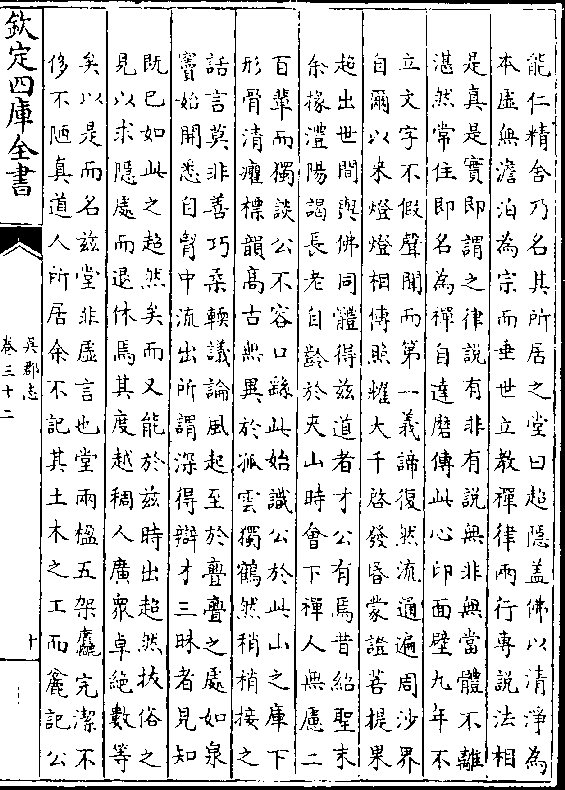 能仁精舍乃名其所居之堂曰超隱盖佛以清淨為
本虛無澹泊為宗而垂世立教禪律兩行專説法相
是真是實即謂之律説有非有説無非無當體不離
湛然常住即名為禪自達磨傳此心印面壁九年不
立文字不假聲聞而第一義諦復然流通遍周沙界
自爾以来燈燈相傳照耀大千啓發昏蒙證菩提果
超出世間與佛同體得兹道者才公有焉昔紹聖末
余掾澧陽謁長老自齡於夾山時會下禪人無慮二
百輩而獨談公不容口繇此始識公於此山之庫下
形骨清癯標韻髙古無異於孤雲獨鶴然稍稍接之
話言莫非善巧柔輭議論風起至於亹亹之處如泉
竇始開悉自胷中流出所謂深得辯才三昧者見知
既已如此之超然矣而又能於兹時出超然抜俗之
見以求隱處而退休焉其度越稠人廣衆卓絶數等
矣以是而名兹堂非虛言也堂兩楹五架麤完潔不
侈不陋真道人所居余不記其土木之工而麄記公
欽定四庫全書
吳郡志
卷三十二
十